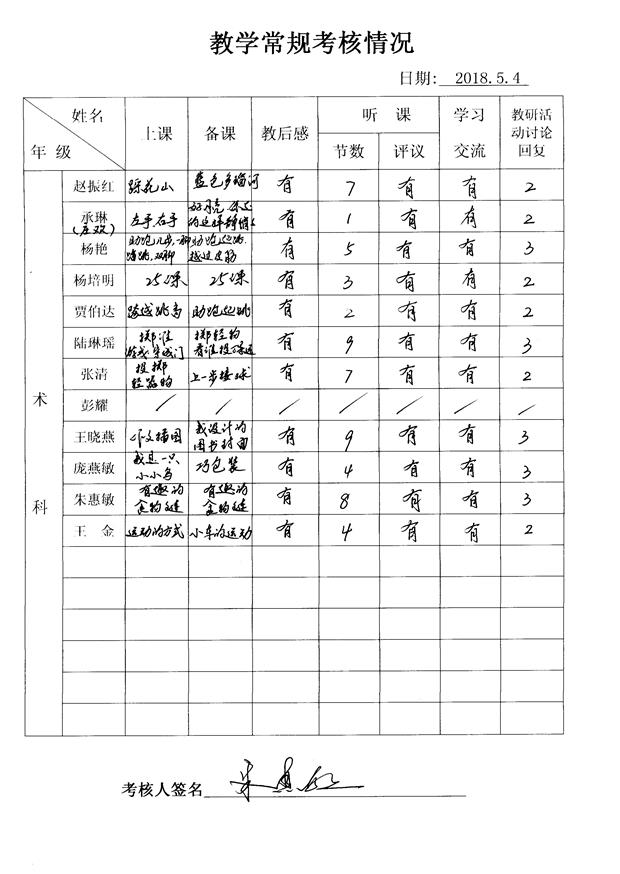 教学常规考核情况
日期: 2018.5.4
姓名 上课 备课 教后感 听 课 学习交流 教研活动讨论回复
年 级 节数 评议
术科
赵振红 踩花山 蓝色多瑙河 有 7 有 有 2
承琳 左手、右手 有 1 有 有 2
杨艳 有 5 有 有 3
杨培明 25课 25课 有 3 有 有 2
贾伯达 跨越跳高 助跑 有 2 有 有 2
陆琳瑶 掷准 掷轻物 有 9 有 有 3
张清 投掷轻器物 上一步接球 有 7 有 有 2
彭耀 / / / / / / /
王晓燕 作文插图 我设计的图书封面 有 9 有 有 3
庞燕敏 我是一只小小鸟 巧包装 有 4 有 有 3
朱惠敏 有趣的食物链 有趣的食物链 有 8 有 有 3
王 金 运动的方式 小车的运动 有 4 有 有 2
考核人签名